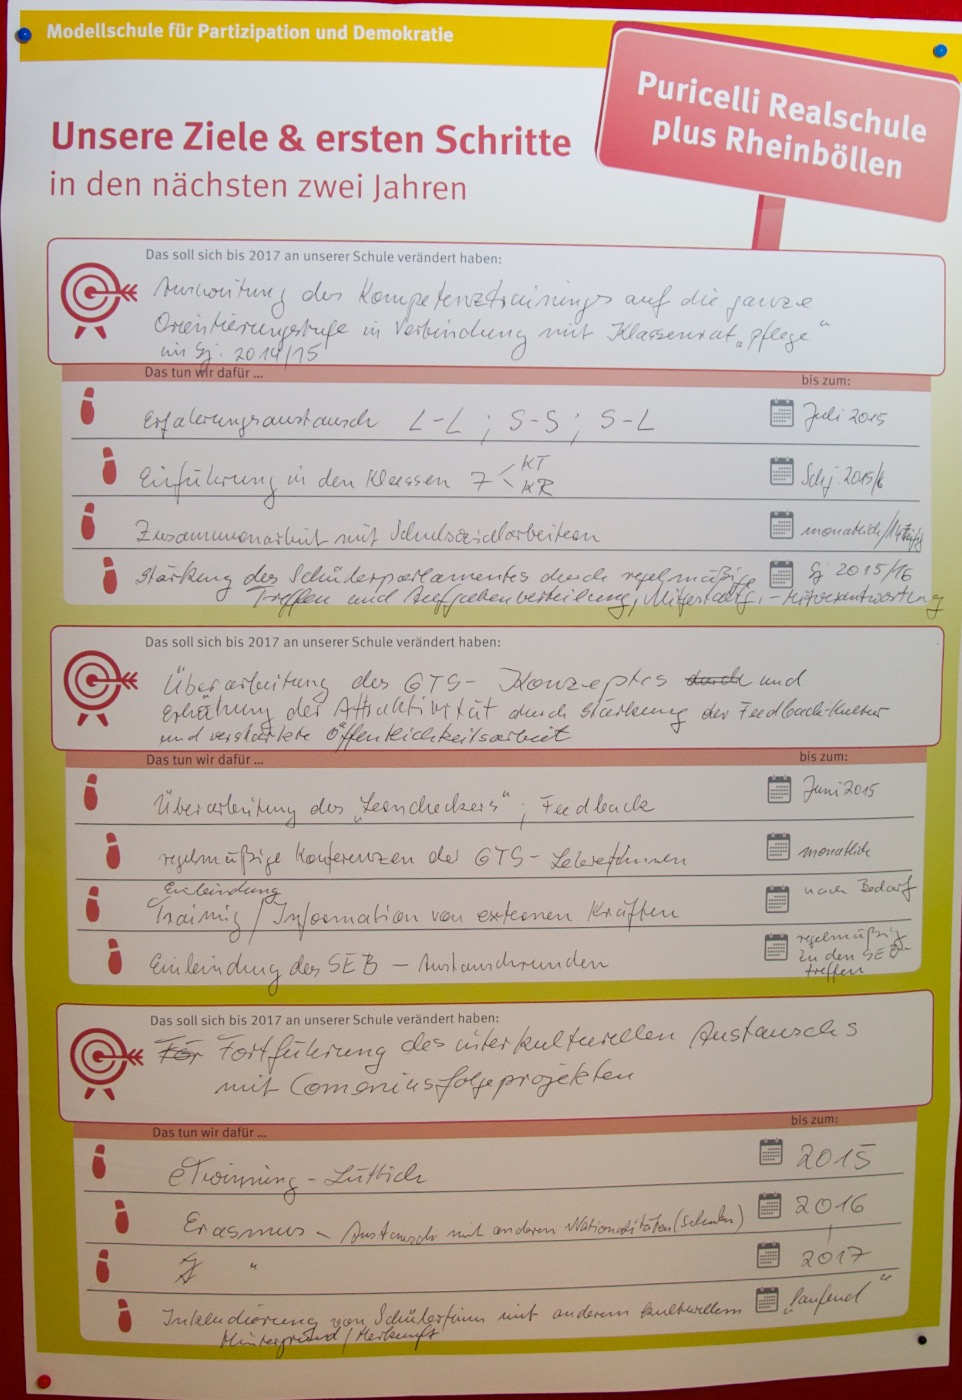 Modellschule für Partizipation und Demokratie
Puricelli Realschule
plus Rheinböllen
Unsere Ziele & ersten Schritte
in den nächsten zwei Jahren
Das soll sich bis 2017 an unserer Schule verändert haben:
Ausweitung des Kompetenztrainings auf die ganze
Orientierungsstufe in Verbindung mit Klassenrat „pflege“
im Sj. 2014/15
Das tun wir dafür ...
bis zum:
Erfahrungsaustausch L-L ; S-S ; S-L
Juli 2015
Einführung in den Klassen 7 < KT
KR
Schj. 2015/6
Zusammenarbeit mit Schulsozialarbeiterin
monatlich/14tägig
Stärkung des Schülerparlamentes durch regelmäßige
Sj 2015/16
Treffen und Aufgabenverteilung, Mitgestaltg., -Mitverantwortung
Das soll sich bis 2017 an unserer Schule verändert haben:
Überarbeitung des GTS- Konzeptes durch und
Erhöhung der Attraktivität durch Stärkung der Feedback-Kultur
und verstärkte Öffentlichkeitsarbeit
Das tun wir dafür ...
bis zum:
Überarbeitung des „Lerncheckers“ ; Feedback
Juni 2015
regelmäßige Konferenzen der GTS- LehrerInnen
monatlich
Einladung
Training / Information von externen Kräften
nach Bedarf
Einladung des SEB – Austauschrunden
regelmäßig
zu den SEB-
treffen
Das soll sich bis 2017 an unserer Schule verändert haben:
För Fortführung des interkulturellen Austauschs
mit Comeniusfolgeprojekten
Das tun wir dafür ...
bis zum:
eTwinning - Lüttich
2015
Erasmus – Austausch mit anderen Nationalitäten (Schulen)
2016
"
2017
von SchülerInnen mit anderem kulturellem
„laufend“
Hintergrund / Herkunft